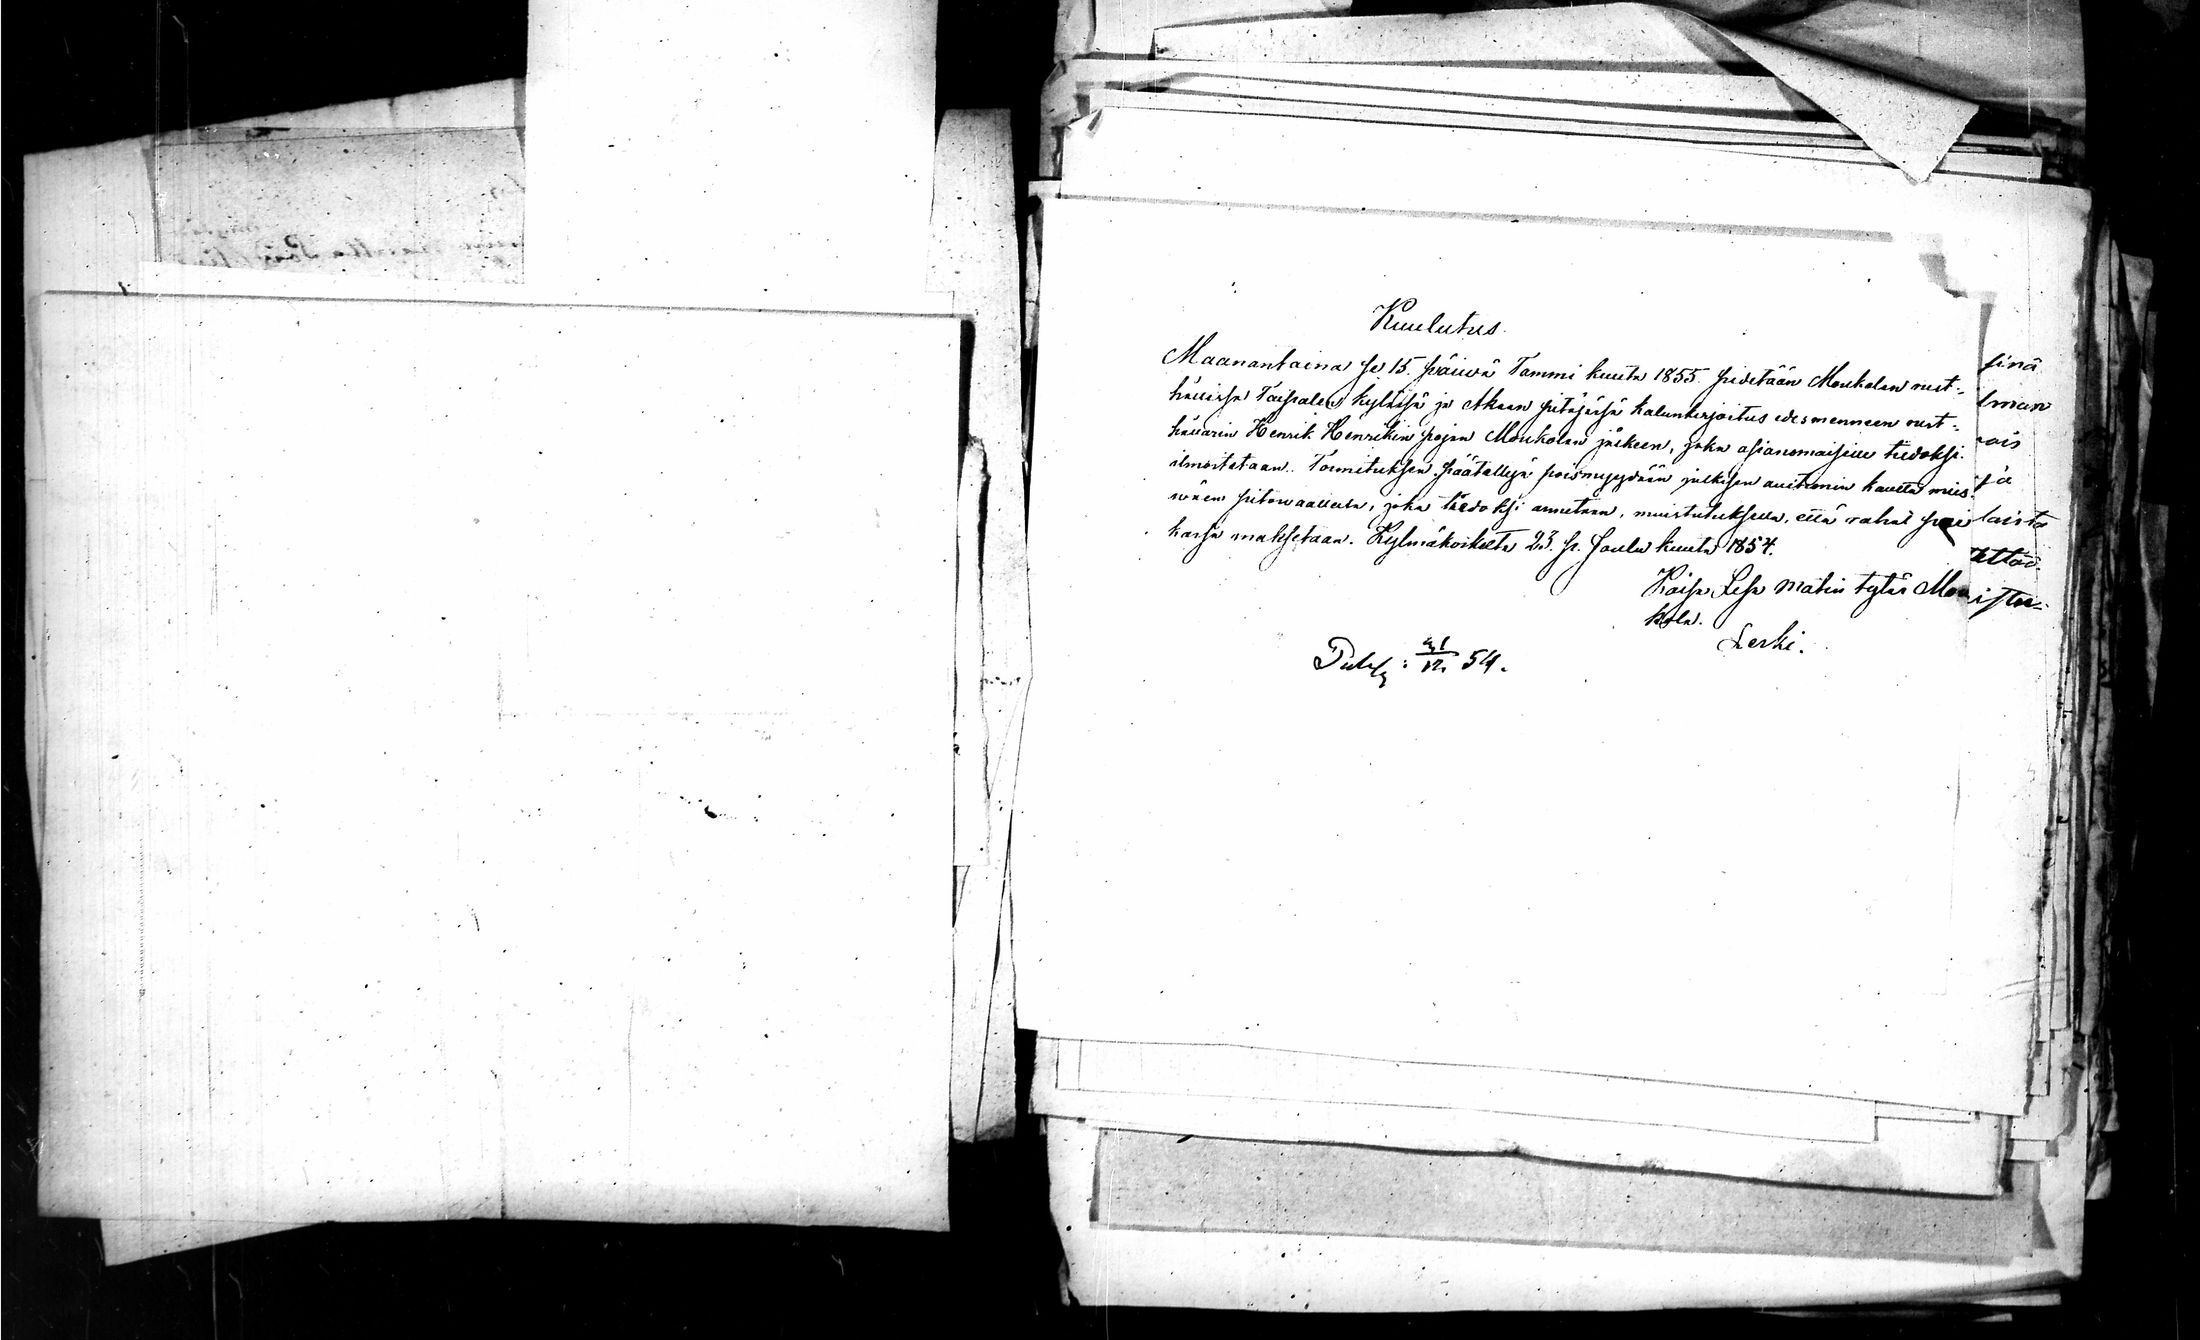 Kuulutus.
Maanantaina se 15. päiwä Tammi kuuta 1855. pidetään Moukolan rust-
hållissa Taipaleen kylässä ja Akaan pitäjässä kalunkirjoitus edesmenneen rust-
hållarin Henrik Henrikin pojan Moukolan jälkeen, joka asianomaisille tiedoksi
ilmoitetaan. Toimituksen päätettyä poismyydään julkisen auctionin kautta mies-
wäen pitowaatteita, joka tiedoksi annetaan, muistutuksella, että rahat
kassa maksetaan. Kylmäkoskelta 23. p. Joulu kuuta 1854.
Kaisa Lesa Matin tytär Mou-
kola.
Leski.
Publ: 31/12 54.
sinä
lman
ois
sä
laista